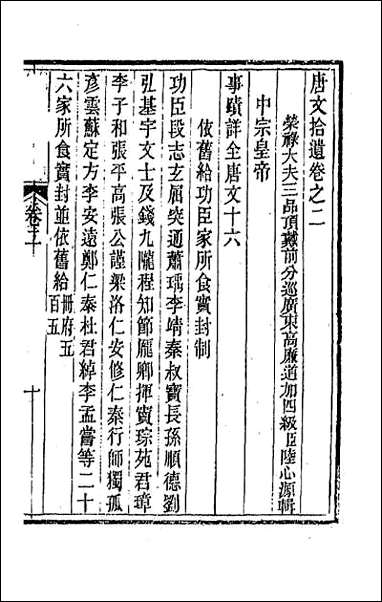 唐文拾遺卷之二
榮祿大夫三品頂戴前分巡廣東高廉道加四級臣陸心源輯
中宗皇帝
事蹟詳全唐文十六
依舊給功臣家所食實封制
功臣段志玄屈突通蕭瑀李靖秦叔寶長孫順德劉
弘基宇文士及錢九隴程知節龐卿惲竇琮苑君璋
李子和張平高張公謹梁洛仁安修仁秦行師獨孤
彥雲蘇定方李安遠鄭仁泰杜君綽李孟嘗等二十
六家所食實封並依舊給冊府五百五
卷二
十